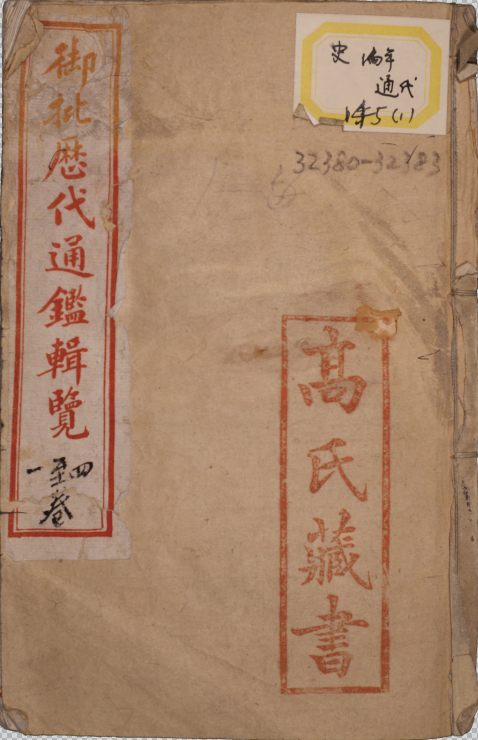 御批歷代通鑑輯覽
一至四
卷
史 编年
通代
32380-32383
高氏藏書